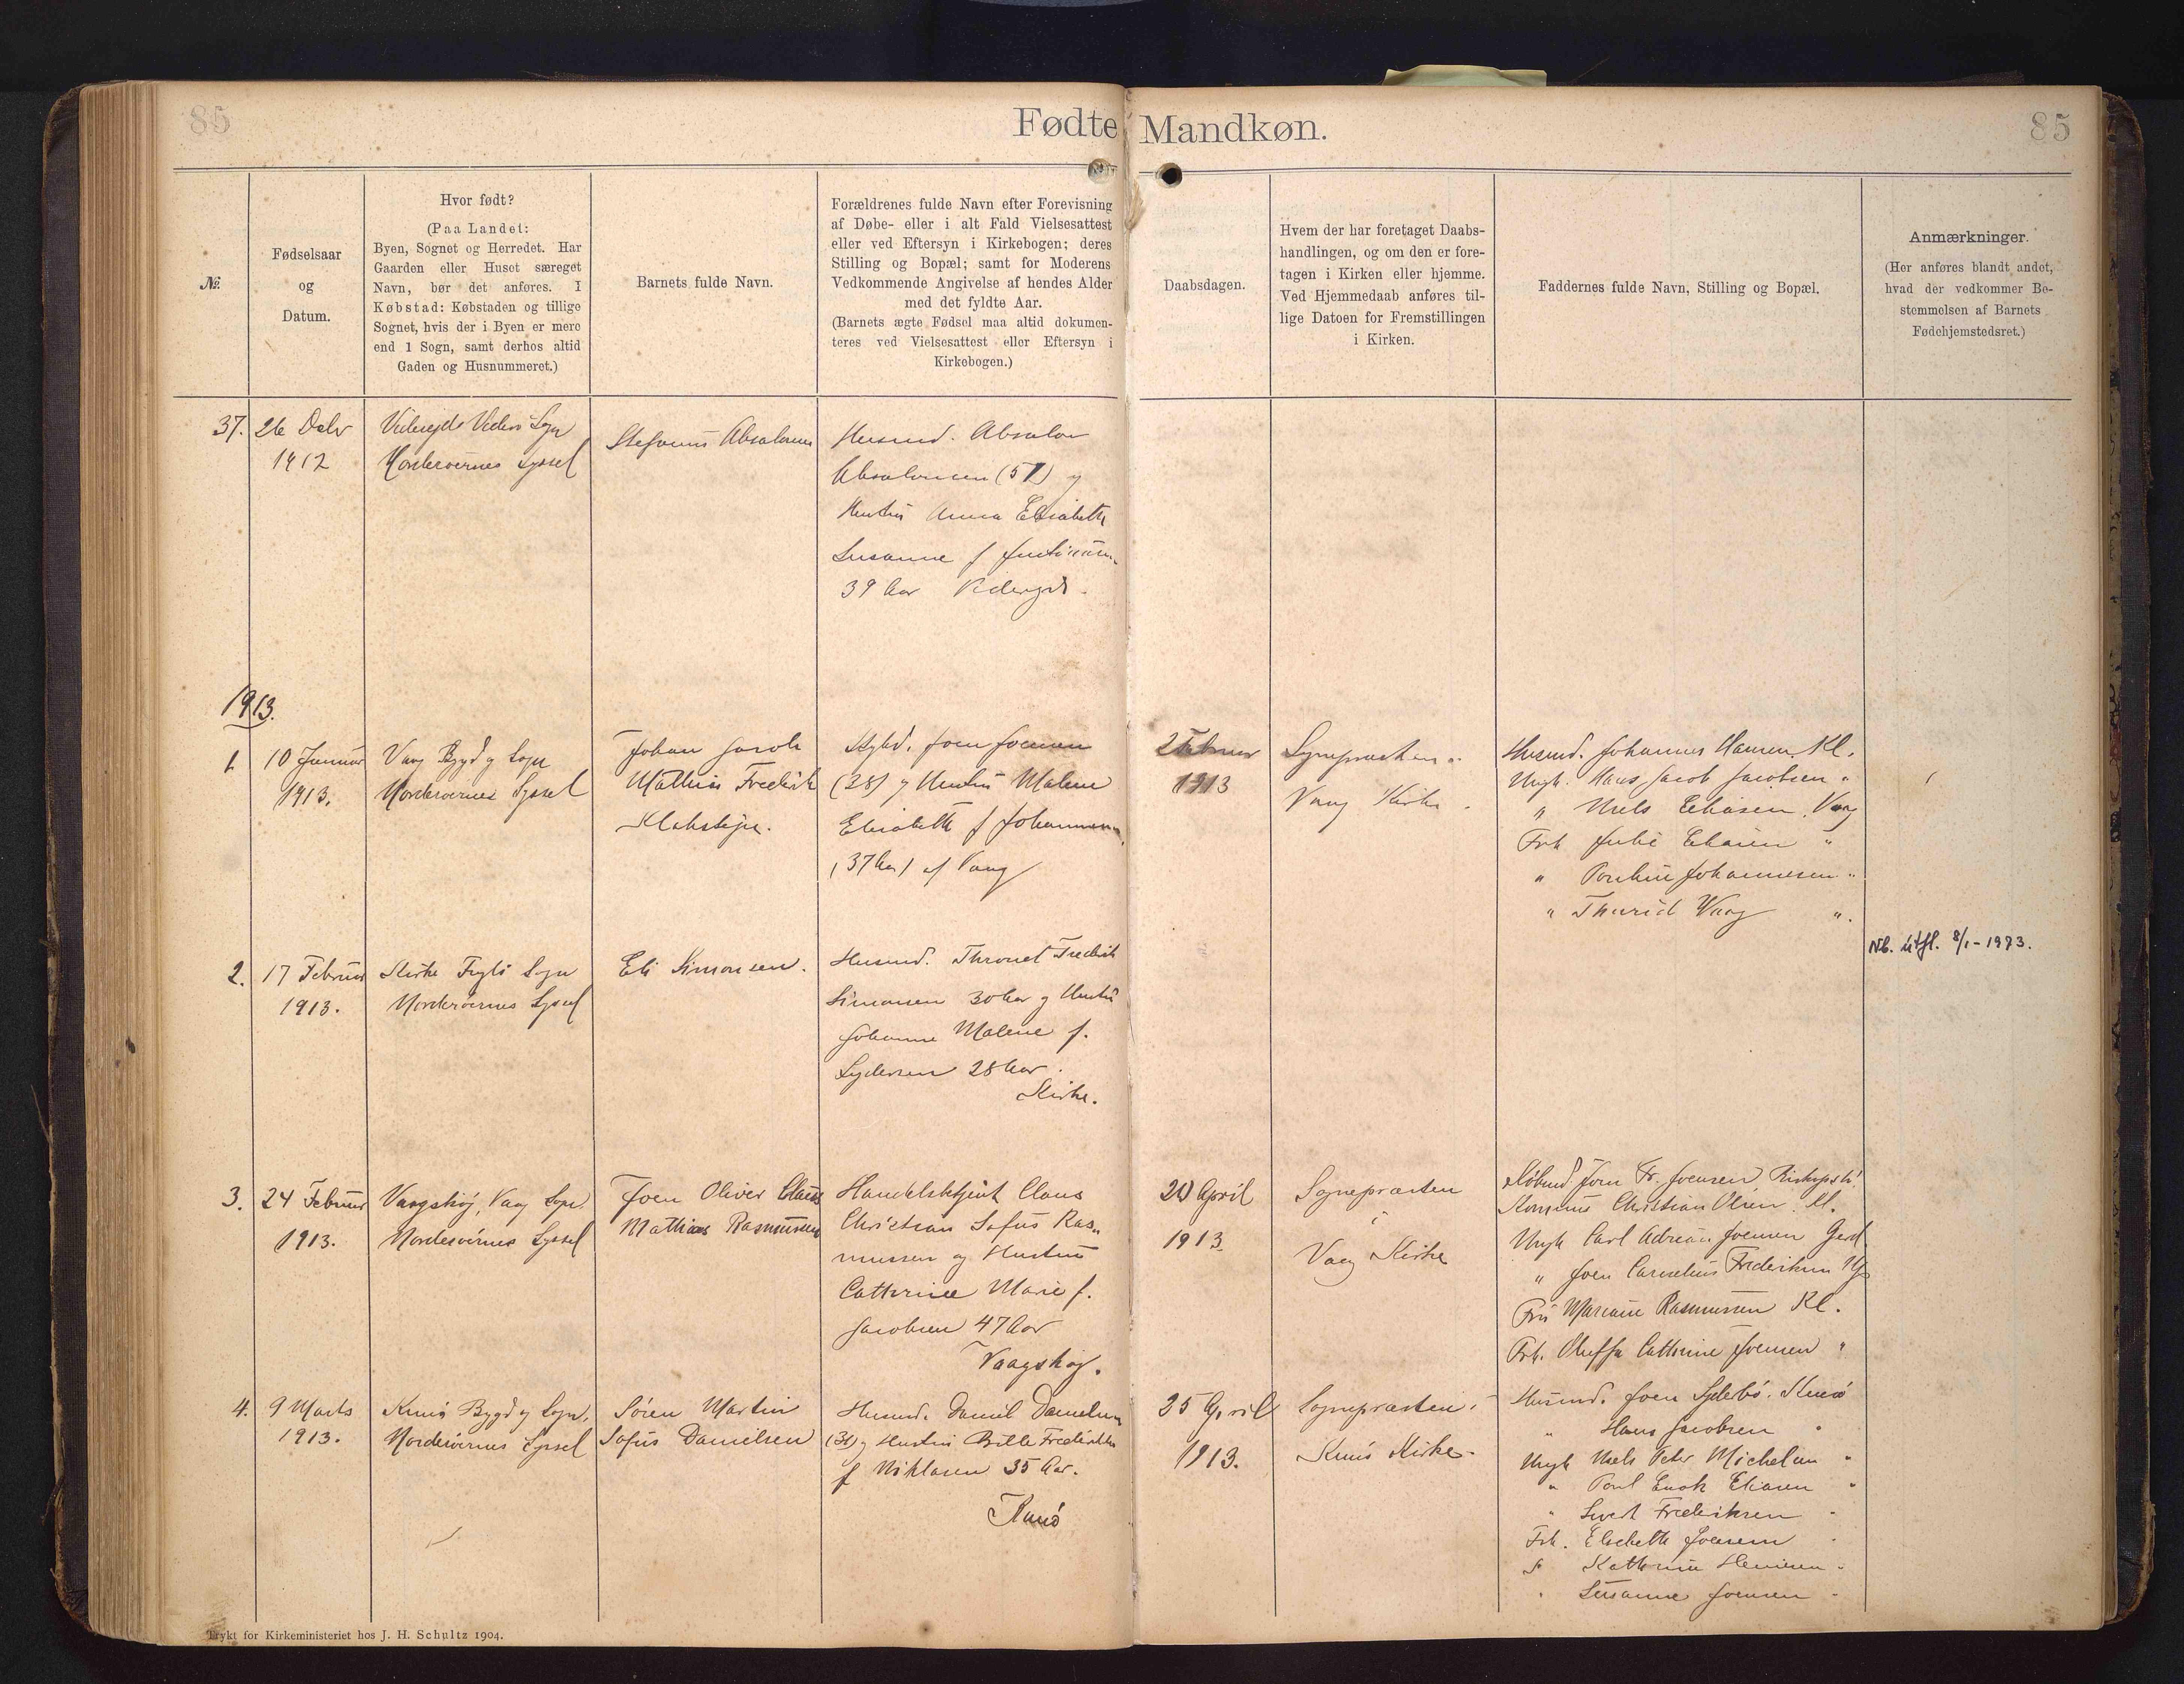 85
Fødte Mandkøn.
85
№
Fødselsaar
og
Datum.
Hvor født?
(Paa Landet:
Byen, Sognet og Herredet. Har
Gaarden eller Huset særeget
Navn, bør det anføres. I
Købstad: Købstaden og tillige
Sognet, hvis der i Byen er mere
end 1 Sogn, samt derhos altid
Gaden og Husnummeret.)
Barnets fulde Navn.
Forældrenes fulde Navn efter Forevisning
af Døbe- eller i alt Fald Vielsesattest
eller ved Eftersyn i Kirkebogen; deres
Stilling og Bopæl; samt for Moderens
Vedkommende Angivelse af hendes Alder
med det fyldte Aar.
(Barnets ægte Fødsel maa altid dokumen-
teres ved Vielsesattest eller Eftersyn i
Kirkebogen.)
Daabsdagen.
Hvem der har foretaget Daabs-
handlingen, og om den er fore-
tagen i Kirken eller hjemme.
Ved Hjemmedaab anføres til-
lige Datoen for Fremstillingen
i Kirken.
Faddernes fulde Navn, Stilling og Bopæl.
Anmærkninger.
(Her anføres blandt andet,
hvad der vedkommer Be-
stemmelsen af Barnets
Fødehjemstedsret.)
37.
26
1912
Sogn
Norderøernes Syssel
Absalonsen
Husmd. Absalon
Absalonsen (51) og
Hustru Anna Elisabeth
Susanne f
39 Aar
1913.
1
10 Januar
1913.
Vaag Bygd og Sogn
Norderøernes Syssel
Johan Jacob
Mathias Frederik
Klakstein.
Joen Joensen
(38) og Hustru Malene
Elisabeth f Johannesen
(37 Aar) af Vaag
2 Februar
1913
Sognepræsten i
Vaag Kirke.
Husmd. Johannes Hansen Kl.
Ungk. Hans Jacob Jacobsen "
" Niels Eliasen, Vaag
Frk Julie Eliasen "
" Johannesen "
" Thurid Vaag ".
2.
17 Februar
1913.
Kirke Fuglø Sogn
Norderøernes Syssel
Eli Simonsen.
Husmd. Thronel Frederik
Simonsen 30 Aar og Hustru
Johanne Malene f.
Lydersen 28 Aar.
Kirke.
Nb. útfl. 8/1-1973.
3.
24 Februar
1913.
Vaagshøj, Vaag Sogn
Norderøernes Syssel
Joen Oliver Claus
Mathias Rasmussen
Handelsbetjent Claus
Christian Sofus Ras-
mussen og Hustru
Cathrine Marie f.
Jacobsen 47 Aar
Vaagshøj.
20 April
1913.
Sognepræsten
i
Vaag Kirke
Købmd Joen Fr. Joensen
Christian Olsen. Kl.
Ungk Carl Adrian Joensen
" Joen Cornelius Frederiksen
Fru Mariane Rasmussen Kl.
Frk. Oluffa Cathrine Joensen "
4.
9 Marts
1913.
Kunø Bygd og Sogn,
Norderøernes Syssel
Søren Martin
Sofus Danielsen
Husmd. Daniel Danielsen
og Hustru Frederikke
f Niklasen 35 Aar.
Kunø
25 April
1913.
Sognepræsten i
Kunø Kirke.
Husmd. Joen Kunø
" Hans Jacobsen "
Ungk Niels Peter Michelsen "
" Poul Enok Eliasen "
" Frederiksen "
Frk. Elsebeth Joensen "
" Kathrine "
" Susanne Joensen "
Trykt for Kirkeministeriet hos J. H. Schultz 1904.